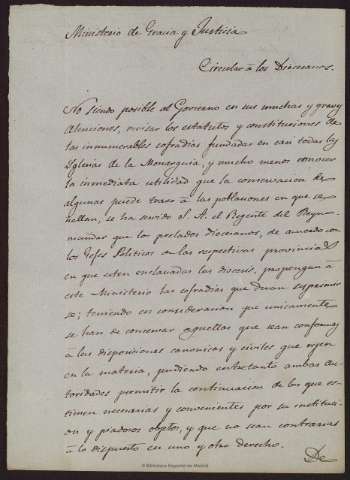 Ministerio de Gracia y Justicia
Circular à los Diocesanos.
No siendo posible al Govierno en sus muchas y graves
atenciones, revisar los estatutos y constituciones de
las innumerables cofradias fundadas en casi todas las
Iglesias de la Monarquia, y mucho menos conocer
la inmediata utilidad que la conservacion de
algunas puede traer à las poblaciones en que se
hallan, se ha servido S. A. el Regente del Reyno
mandar que los prelados diocesanos, de acuerdo con
los Gefes Politicos de las respectivas provincias
en que esten enclavadas las diocesis, propongan à
este Ministerio las cofradias que deban suprimir
se; teniendo en consideracion que unicamente
se han de conservar aquellas que sean conformes
à las disposiciones canonicas y civiles que rijen
en la materia, pudiendo entretanto ambas au-
toridades permitir la continuacion de las que es-
timen necesarias y convenientes por su institucion
y piadoso objeto, y que no sean contrarias
à lo dispuesto en uno y otro derecho.
De
© Biblioteca Regional de Madrid